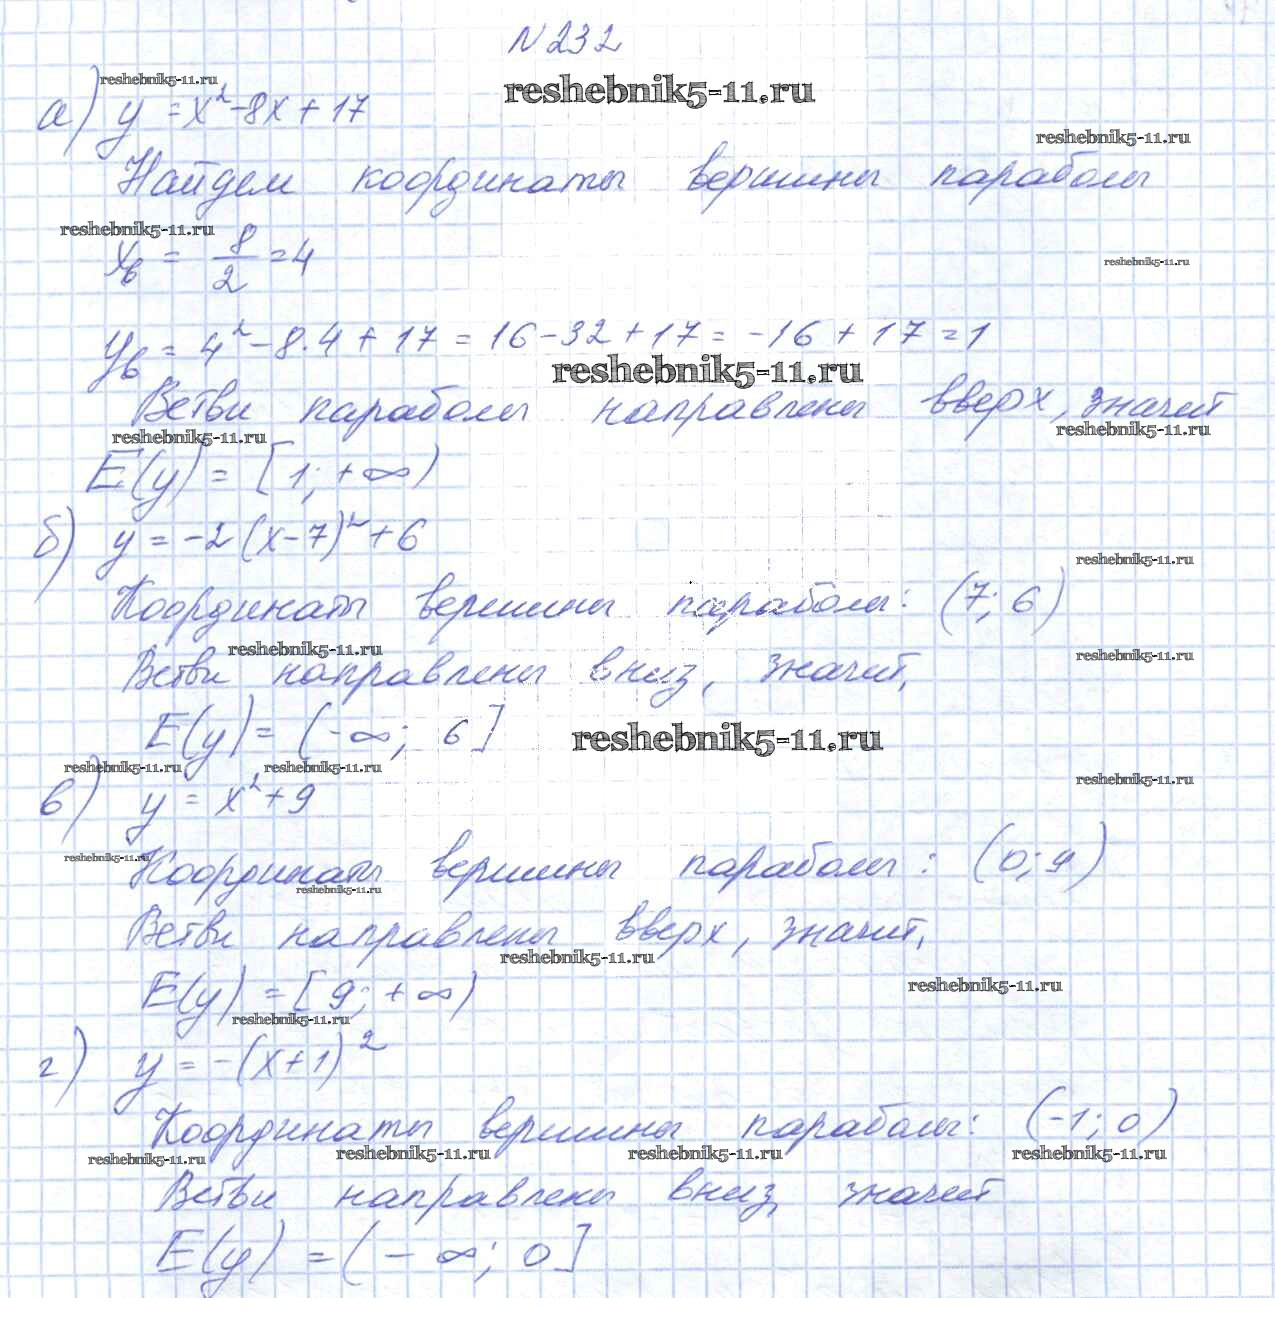 №232
reshebnik5-11.ru
reshebnik5-11.ru
а) y = x² - 8x + 17
reshebnik5-11.ru
Найдем координаты вершины параболы
reshebnik5-11.ru
xв = 8/2 = 4
reshebnik5-11.ru
yв = 4² - 8·4 + 17 = 16 - 32 + 17 = -16 + 17 = 1
reshebnik5-11.ru
Ветви параболы направлены вверх, значит
reshebnik5-11.ru reshebnik5-11.ru
E(y) = [1; +∞)
б) y = -2(x - 7)² + 6
reshebnik5-11.ru
Координаты вершины параболы: (7; 6)
reshebnik5-11.ru reshebnik5-11.ru
Ветви направлены вниз, значит,
E(y) = (-∞; 6]
reshebnik5-11.ru
reshebnik5-11.ru reshebnik5-11.ru
reshebnik5-11.ru
в) y = x² + 9
reshebnik5-11.ru
Координаты вершины параболы: (0; 9)
reshebnik5-11.ru
Ветви направлены вверх, значит,
reshebnik5-11.ru
reshebnik5-11.ru
E(y) = [9; +∞)
reshebnik5-11.ru
г) y = -(x + 1)²
Координаты вершины параболы: (-1; 0)
reshebnik5-11.ru reshebnik5-11.ru reshebnik5-11.ru reshebnik5-11.ru
Ветви направлены вниз, значит
E(y) = (-∞; 0]